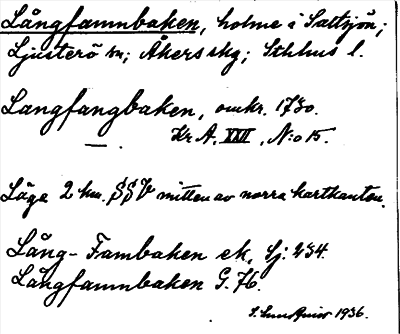 Långfamnbåken, holme i Saltsjön;
Ljusterö sn; Åkers skg; Sthlms l.
Langfangbaken, omkr. 1730.
Kr A. XXII, N:o 15.
Läge 2 km. SSV mitten av norra kartkanten.
Lång-Fambaken ek. Sj. 234.
Långfamnbaken G. 76.
S. Lundquist 1936.